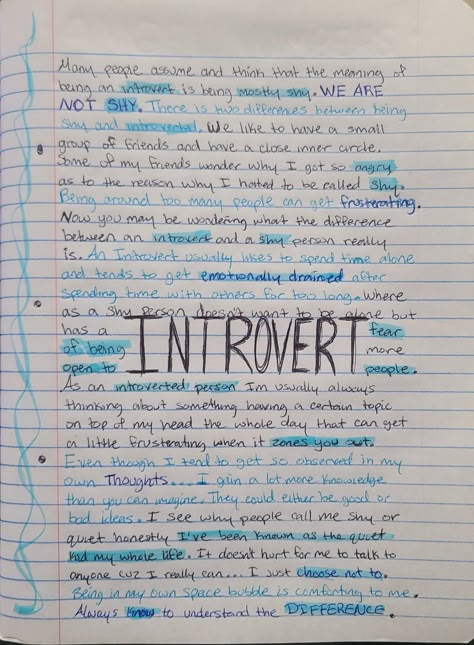 Many people assume and think that the meaning of
being an introvert is being mostly shy. WE ARE
NOT SHY. There is two differences between being
shy and introverted. We like to have a small
group of friends and have a close inner circle.
Some of my friends wonder why I got so angry
as to the reason why I hated to be called shy.
Being around too many people can get frusterating.
Now you may be wondering what the difference
between an introvert and a shy person really
is. An Introvert usually likes to spend time alone
and tends to get emotionally drained after
spending time with others for too long. Where
as a shy person doesn't want to be alone but
has a fear
of being INTROVERT more
open to people.
As an introverted person I'm usually always
thinking about something having a certain topic
on top of my head the whole day that can get
a little frusterating when it zones you out.
Even though I tend to get so observed in my
own Thoughts... I gain a lot more knowledge
than you can imagine. They could either be good or
bad ideas. I see why people call me shy or
quiet honestly I've been known as the quiet
kid my whole life. It doesn't hurt for me to talk to
anyone cuz I really can... I just choose not to.
Being in my own space bubble is comforting to me.
Always know to understand the DIFFERENCE.